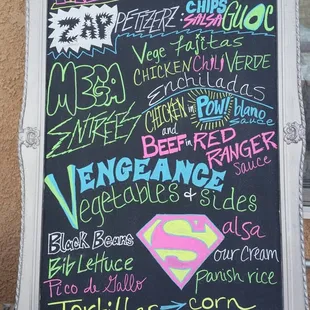 ZAP
PETIZERZ: CHIPS
SALSA
GUOC
Vege fajitas
MEGA
CHICKEN Chili VERDE
ENTREES
Enchiladas
CHICKEN in POW! blano
sauce
and
BEEF in RED
RANGER
sauce
VENGEANCE
Vegetables & sides
Black Beans
Bib Lettuce
Pico de Gallo
S
alsa
our Cream
panish rice
Tortillas → corn